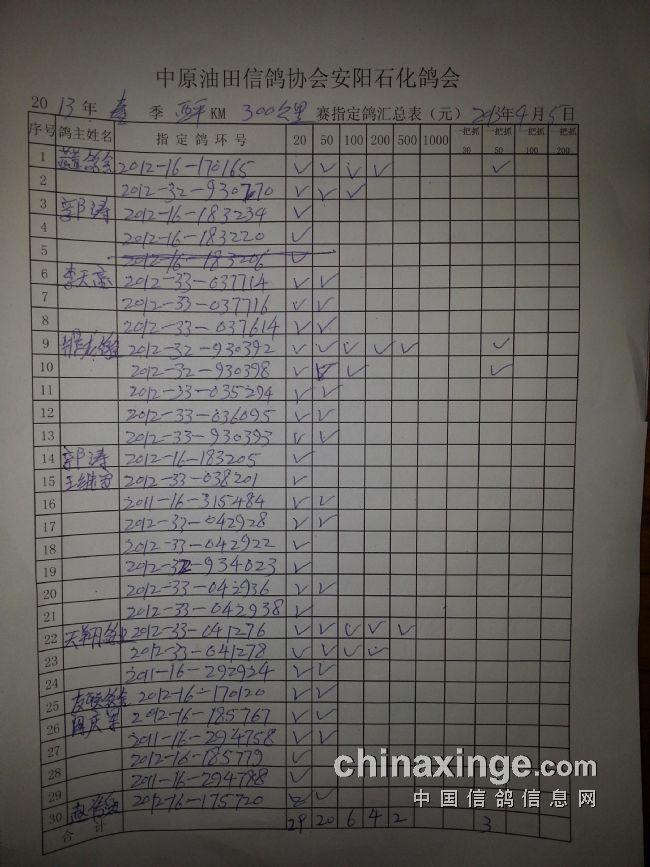 中原油田信鸽协会安阳石化鸽会
2013年 春 季 KM 300公里 赛指定鸽汇总表（元） 2013年4月5日
序号 鸽主姓名 指定鸽环号 20 50 100 200 500 1000 一把抓30 一把抓50 一把抓100 一把抓200
1 2012-16-170165 ✓ ✓ ✓ ✓ ✓
2 2012-32-930770 ✓ ✓ ✓
3 郭涛 2012-16-183234 ✓
4 2012-16-183220 ✓
5 2012-16-183206 ✓
6 李天亮 2012-33-037714 ✓ ✓
7 2012-33-037716 ✓ ✓
8 2012-33-037614 ✓ ✓
9 2012-32-930392 ✓ ✓ ✓ ✓ ✓ ✓
10 2012-32-930398 ✓ ✓ ✓ ✓
11 2012-33-035294 ✓ ✓
12 2012-33-036095 ✓ ✓
13 2012-33-930393 ✓ ✓
14 郭涛 2012-16-183205 ✓
15 2012-33-038201 ✓
16 2011-16-315484 ✓ ✓
17 2012-33-042928 ✓ ✓
18 2012-33-042922 ✓
19 2012-32-934023 ✓
20 2012-33-042936 ✓ ✓
21 2012-33-042938 ✓
22 2012-33-041276 ✓ ✓ ✓ ✓ ✓
23 2012-33-041278 ✓ ✓ ✓ ✓
24 2011-16-292924 ✓ ✓
25 2012-16-170120 ✓ ✓
26 2012-16-185767 ✓ ✓
27 2011-16-294758 ✓ ✓
28 2012-16-185779 ✓
29 2011-16-294788 ✓
30 2012-16-175720 ✓ ✓
合计 29 20 6 4 2 3
chinaxinge.com
中国信鸽信息网